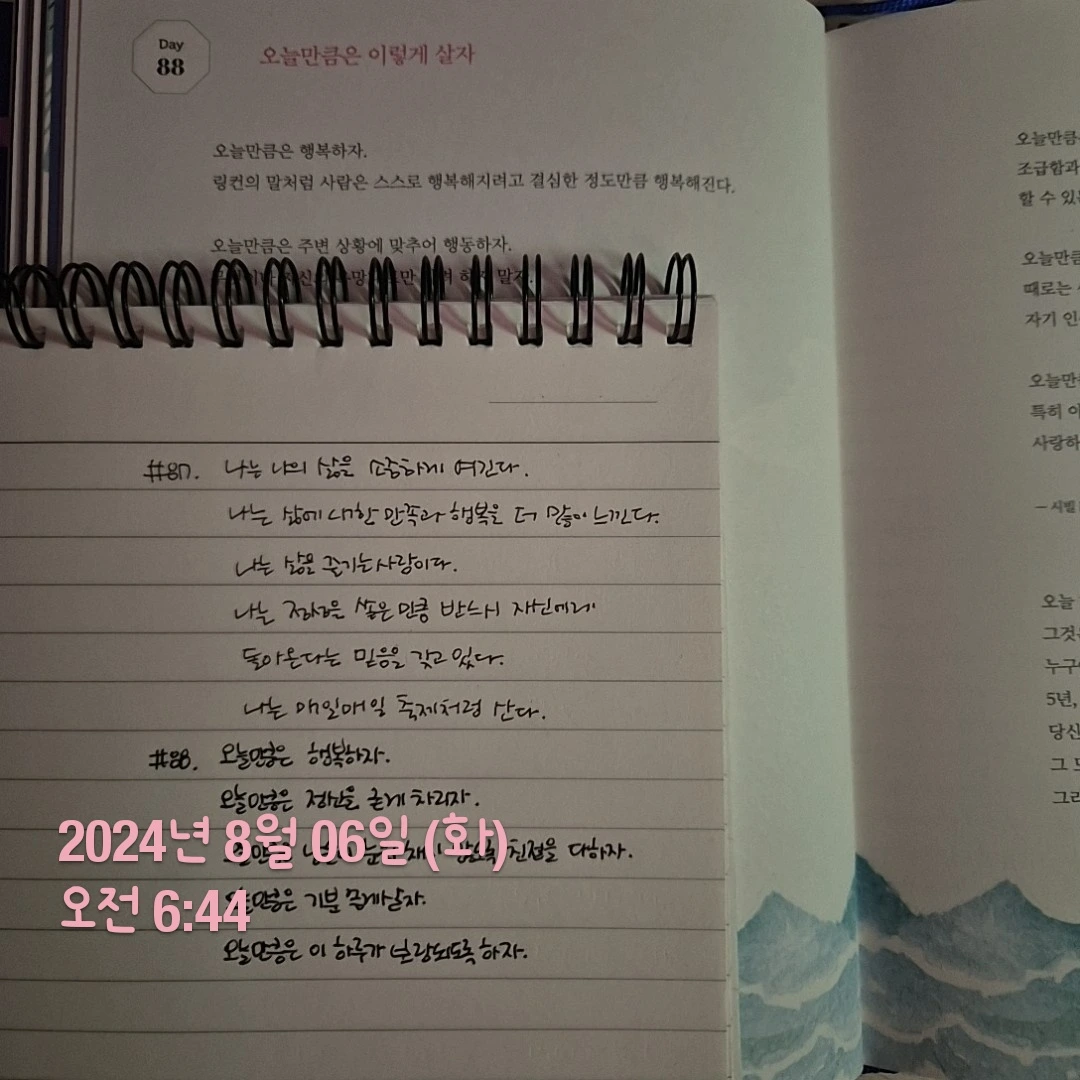 Day
88
오늘만큼은 이렇게 살자
오늘만큼은 행복하자.
링컨의 말처럼 사람은 스스로 행복해지려고 결심한 정도만큼 행복해진다.
오늘만큼은 주변 상황에 맞추어 행동하자.
말자.
오늘만큼
조급함과
할 수 있
오늘만큼
때로는
자기 인
오늘만
특히 이
사랑하
- 시빌
오늘
그것은
누구
5년,
당신
그
그리
#87. 나는 나의 삶을 소중하게 여긴다.
나는 삶에 대한 만족과 행복을 더 많이 느낀다.
나는 삶을 즐기는 사람이다.
나는 정성을 쏟은 만큼 반드시 자신에게
돌아온다는 믿음을 갖고 있다.
나는 매일매일 축제처럼 산다.
#88. 오늘만큼은 행복하자.
오늘만큼은 정신을 굳게 차리자.
친절을 다하자.
오늘만큼은 기분 좋게 살자.
오늘만큼은 이 하루가 보람되도록 하자.
2024년 8월 06일 (화)
오전 6:44